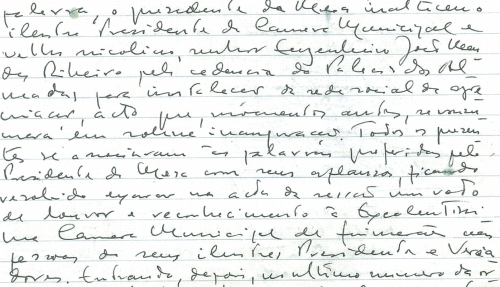 palavra, o presidente da Mesa enalteceu o
ilustre Presidente da Camara Municipal e
senhor Engenheiro José Men
des Ribeiro pela cedencia do Palacio dos Al-
madas, para instalacao da sede social da agre
miacao, acto que, momentos antes, se consu-
mara em solene inauguracao. Todos os presen-
tes se associaram às palavras proferidas pelo
Presidente da Mesa com seus aplausos, ficando
resolvido exarar na acta da sessão um voto
de louvor e reconhecimento à Excelentissi
ma Camara Municipal de Guimarães nas
pessoas do seus ilustres Presidente e Verea
dores. Entrando, depois, no ultimo numero da or